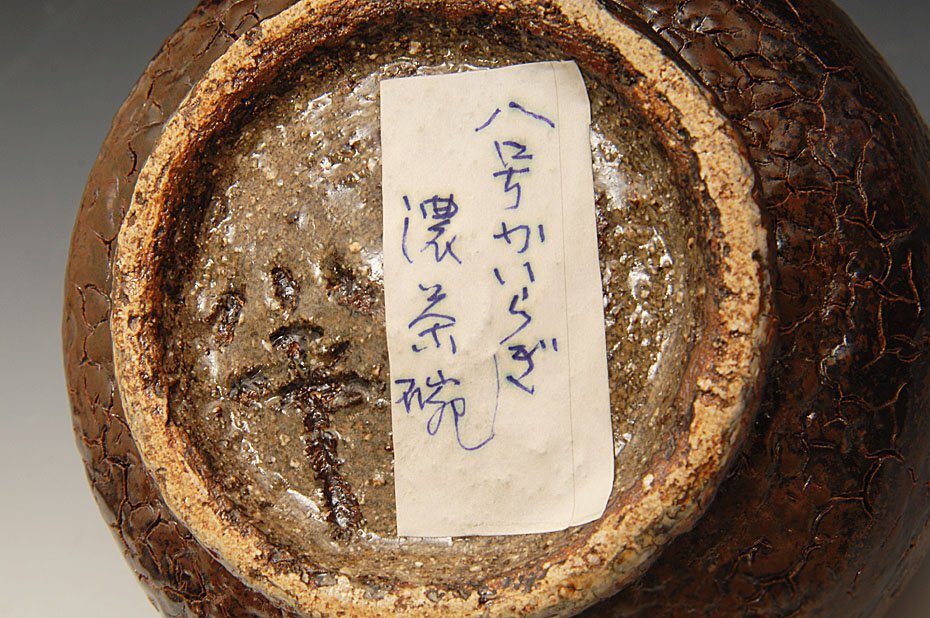 八号かいらぎ
濃茶碗